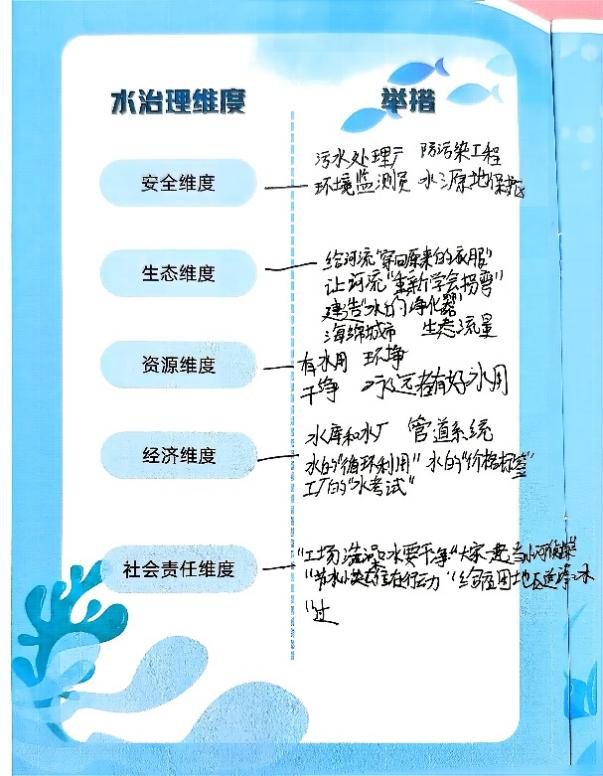 水治理维度 举措
安全维度
污水处理厂 防污染工程
环境监测员 水源地保护区
生态维度
给河流"穿回原来的衣服"
让河流"重新学会拐弯"
建造"水的净化器"
海绵城市 生态流量
资源维度
有水用 环净
干净 永远有好水用
经济维度
水库和水厂 管道系统
水的"循环利用" 水的"价格标签"
工厂的"水考试"
社会责任维度
"工场 水要干净"大家一起当小河侦探
"节水小 在行动"